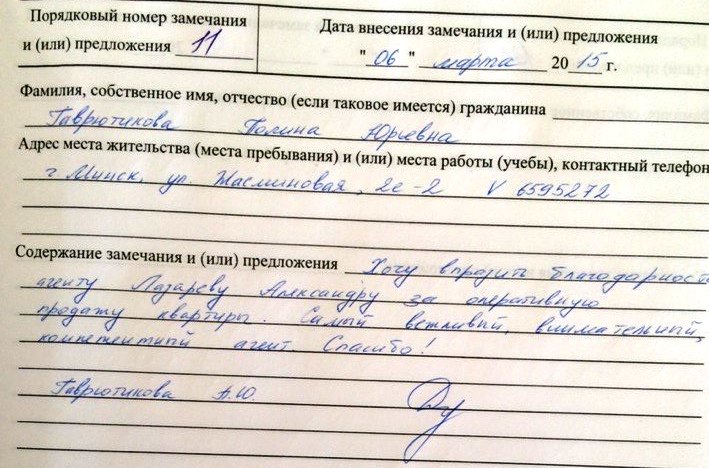 Порядковый номер замечания
и (или) предложения 11
Дата внесения замечания и (или) предложения
"06" марта 2015 г.
Фамилия, собственное имя, отчество (если таковое имеется) гражданина
Гаврютикова Полина Юрьевна
Адрес места жительства (места пребывания) и (или) места работы (учебы), контактный телефон
г Минск, ул. Жасминовая, 2е-2 V 6595272
Содержание замечания и (или) предложения Хочу выразить благодарность
агенту Лазареву Александру за оперативную
продажу квартиры. Самый вежливый, внимательный,
компетентный агент. Спасибо!
Гаврютикова П.Ю.